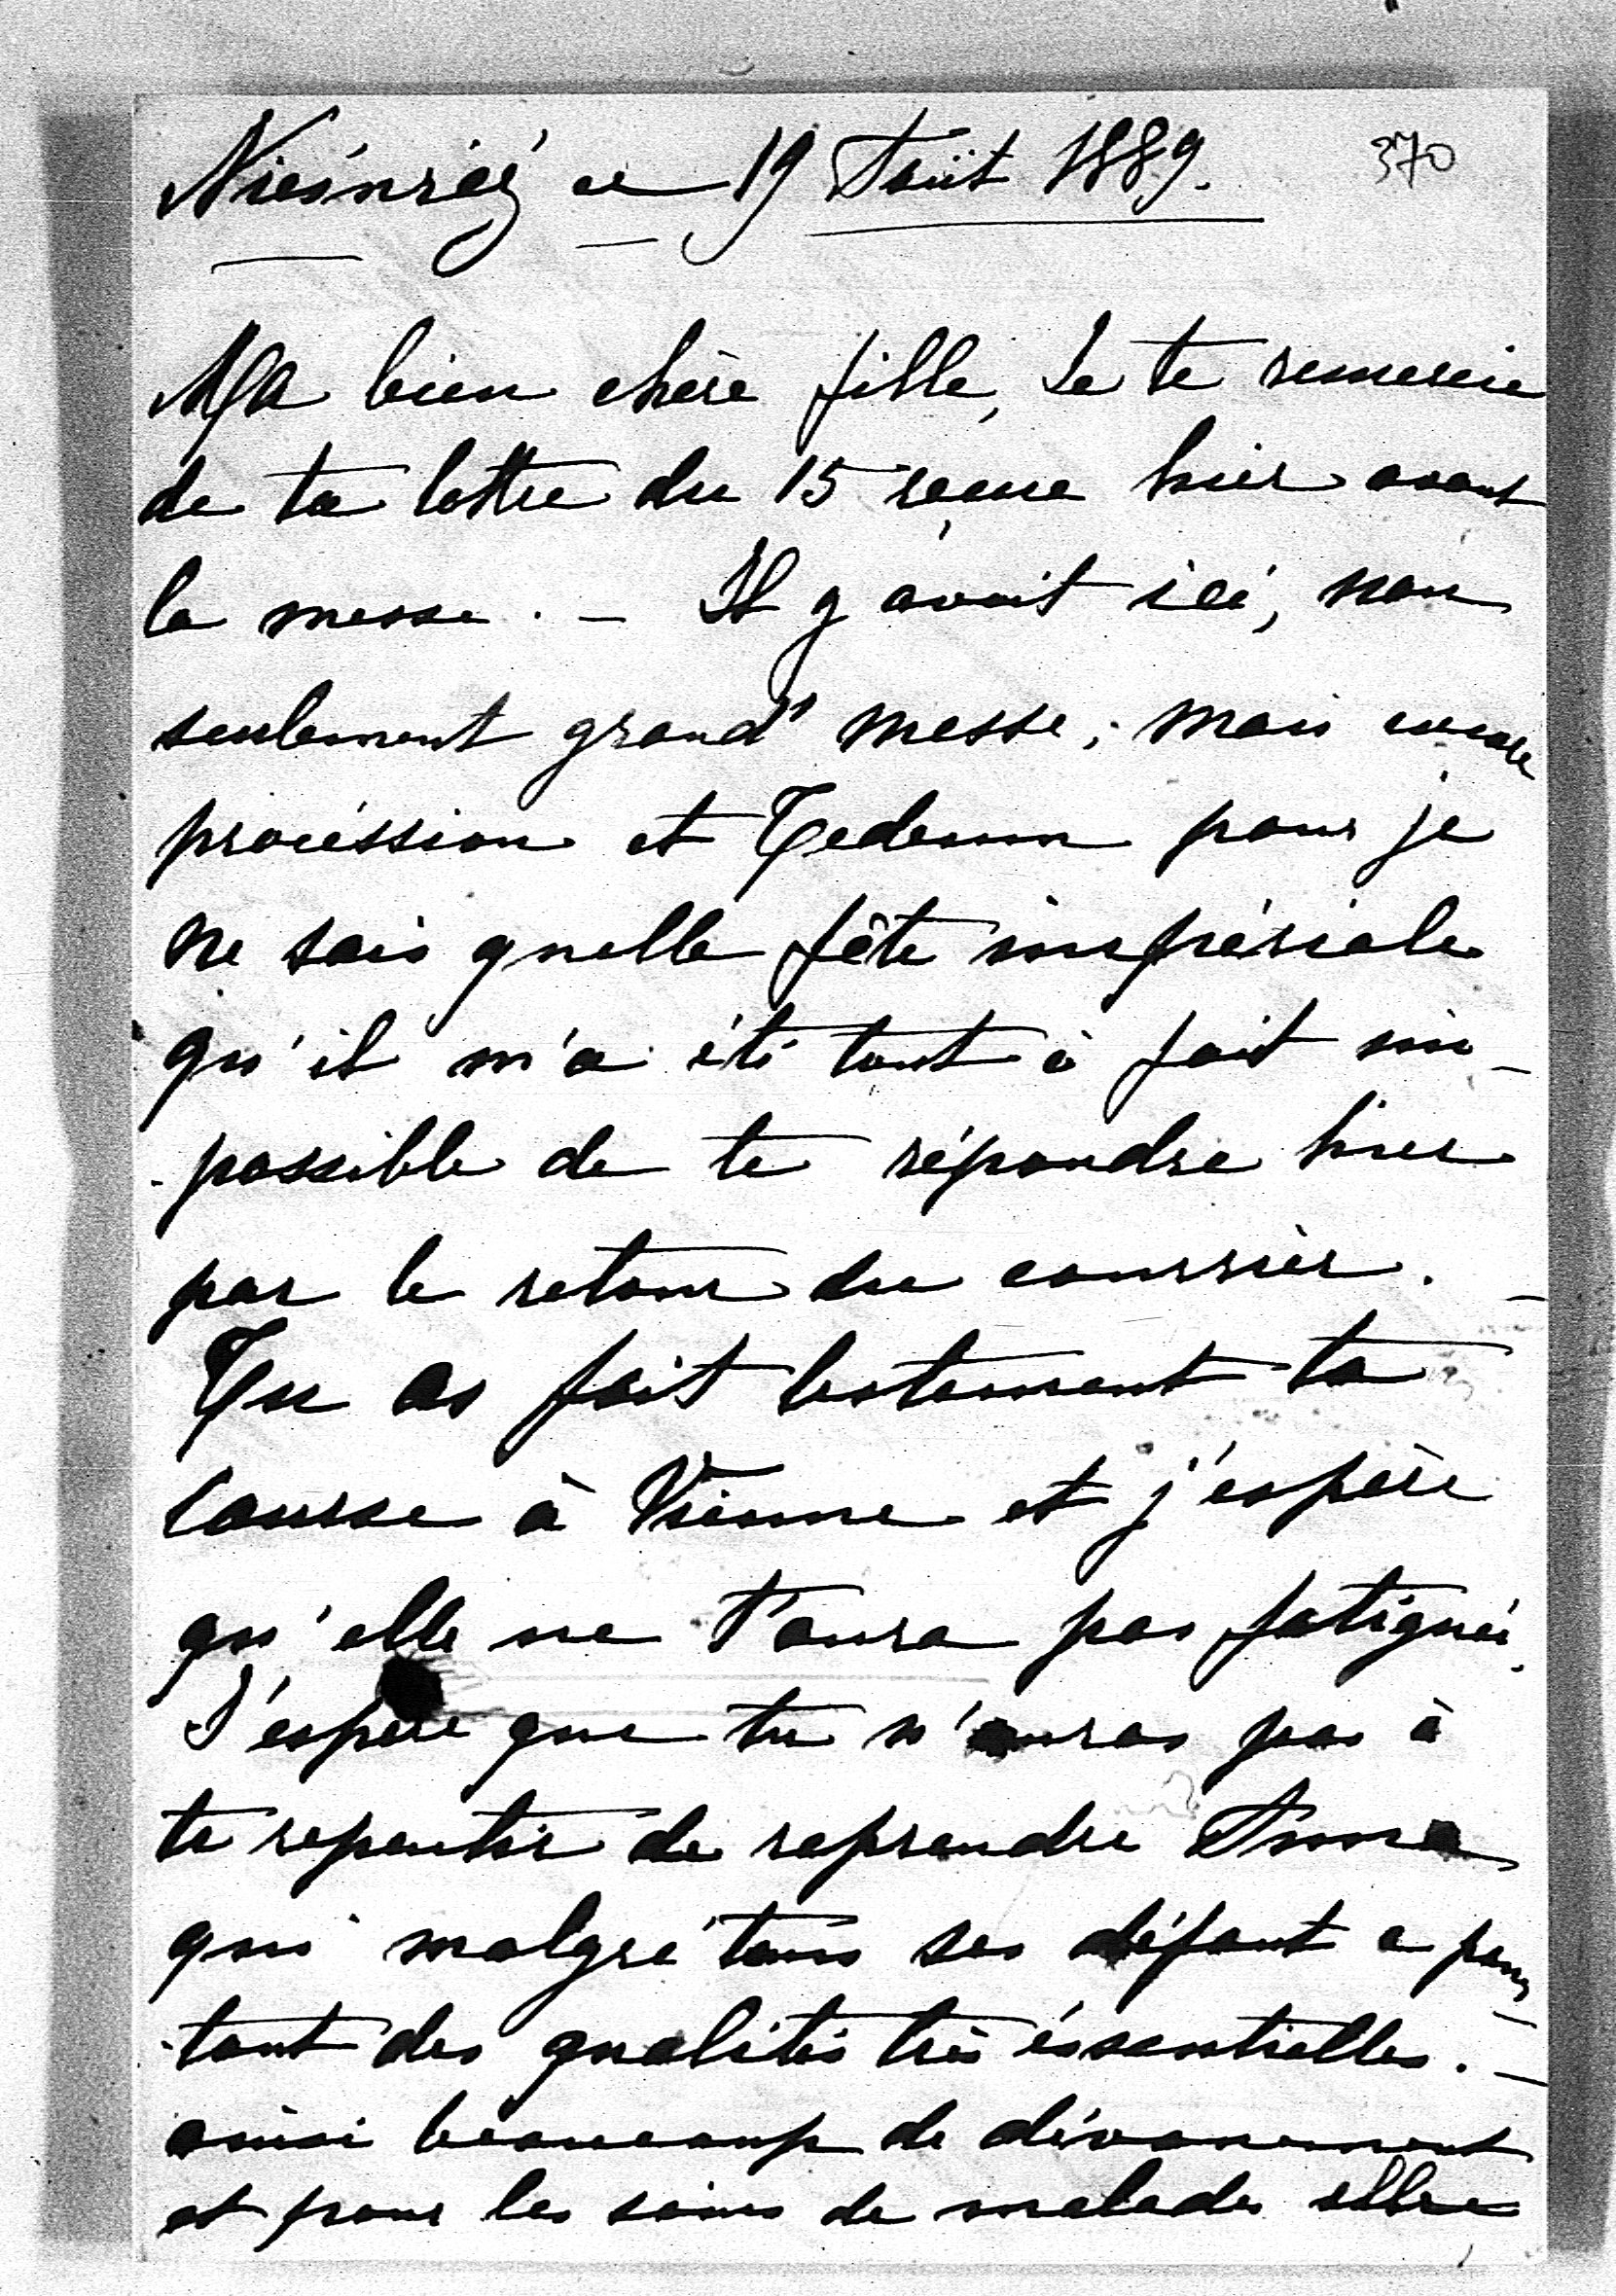 Niéśnréj ce 19 Août 1889. 370
Ma bien chère fille, Je te remercie
de ta lettre du 15 reçue hier avant
la messe. - Il y avait ici, non
seulement grand' messe, mais encore
procéssion et Tedeum pour je
ne sais quelle fête impériale
qu'il m'a été tout à fait im-
-possible de te répondre hier
par le retour du courrier. -
Tu as fait lestement ta
course à Vienne et j'espère
qu'elle ne t'aura pas fatiguée.
J'espère que tu n'auras pas à
te repentir de reprendre Anna
qui malgré tous ses défaut a pour-
-tant des qualités très éssentielles. -
ainsi beaucoup de dévouement
et pour les soins de malades elle